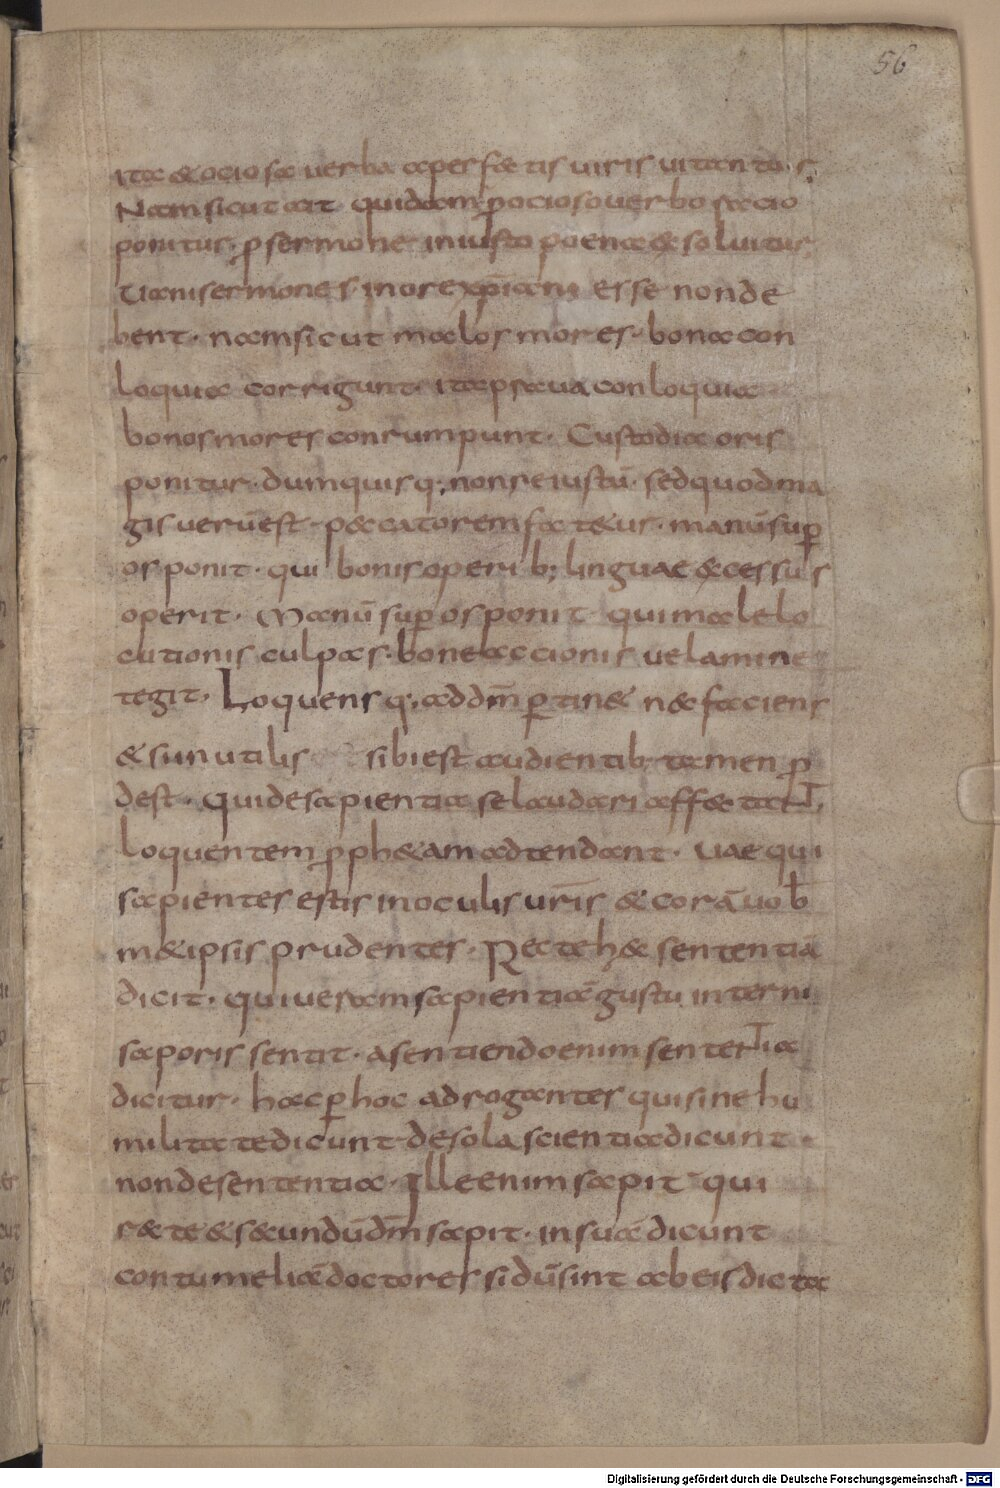 56
ita & ociosa uerba a perfectis uiris uitantur
Nam sicut ait quidam p̱ ocioso uerbo racio
ponitur. p̱ sermone iniusto poena exsoluitur
Uani sermones in ore xp̄iani esse non de
bent. nam sicut malos mores. bona con
loquia corrigunt. ita praua conloquia
bonos mores conrumpunt. Custodia oris
ponitur. dum quisq; non se iustū. sed quod ma
gis uerū est. peccatorem fatetur. manū suꝑ
os ponit. qui bonis operib; linguae excessus
operit. Manū suꝑ os ponit qui male lo
cutionis culpas. bone accionis uelamine
tegit. Loquens q; ad dm̄ ꝑtin& nec faciens
& si inutilis sibi est audientib; tamen p̱
dest. Qui de sapientia se laudari affectant
loquentem p̱ph&am adtendant. Uae qui
sapientes estis in oculis ur̄is & corā uob
m&ipsis prudentes. Recte hec sententiā
dicit. qui ueram sapientiae gustū interni
saporis sentit. a sentiendo enim sententia
dicitur. hac ꝑ hoc adrogantes qui sine hu
militate dicunt de sola scientia dicunt.
non de sententia. Ille enim sapit qui
recte & secundū dm̄ sapit. in suā dicunt
contumeliā doctores si dū sint ab eis dicta
Digitalisierung gefördert durch die Deutsche Forschungsgemeinschaft - DFG